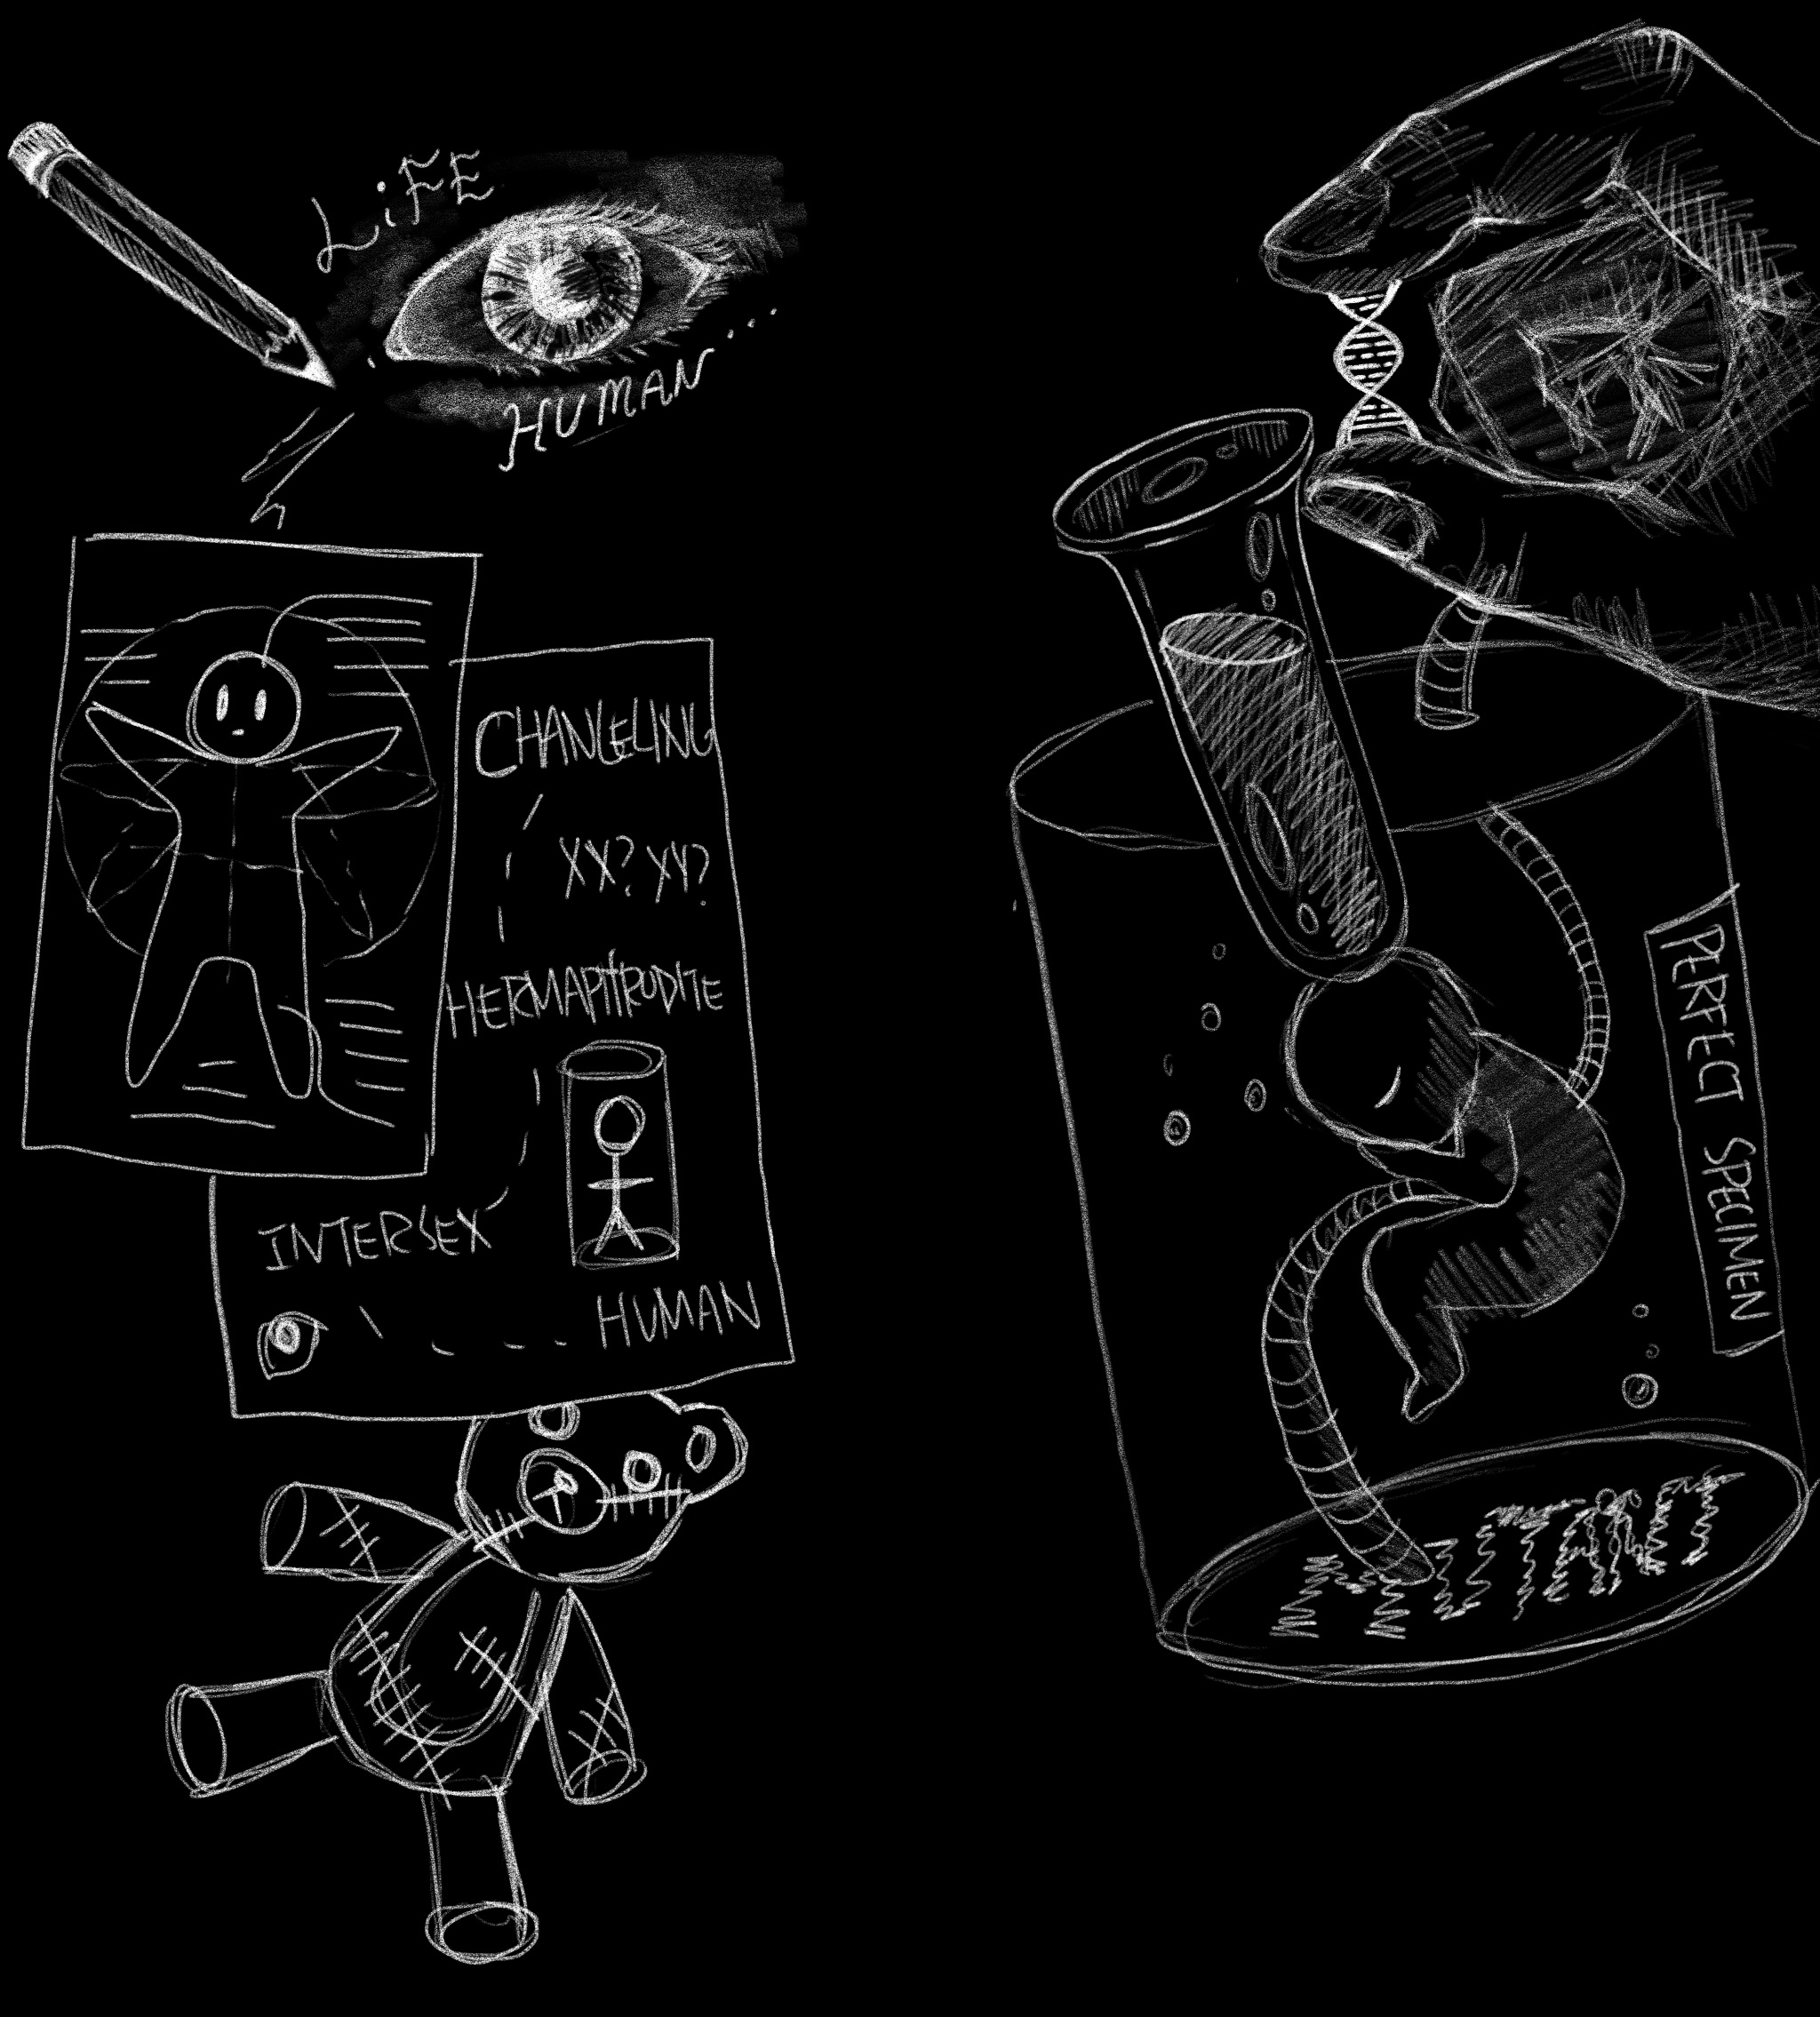 LiFE
HUMAN...
CHANGELING
XX? XY?
HERMAPHRODITE
INTERSEX
HUMAN
PERFECT SPECIMEN